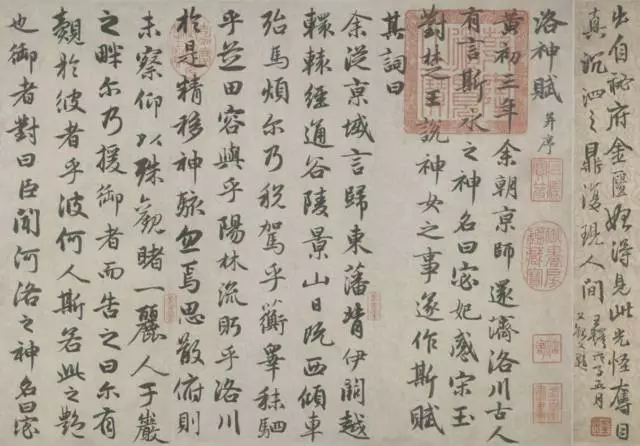 出自秘府金匱始得見此光怪奪目
真沉泗之鼎復現人間
戊子五月
洛神賦 并序
黃初三年余朝京師還濟洛川古人
有言斯水之神名曰宓妃感宋玉
對楚王說神女之事遂作斯賦
其詞曰
余從京域言歸東藩背伊闕越
轘轅經通谷陵景山日既西傾車
殆馬煩尔乃稅駕乎蘅皋秣駟
乎芝田容與乎陽林流眄乎洛川
於是精移神駭忽焉思散俯則
未察仰以殊觀睹一麗人于巖
之畔尔乃援御者而告之曰尔有
覿於彼者乎彼何人斯若此之艷
也御者對曰臣聞河洛之神名曰宓